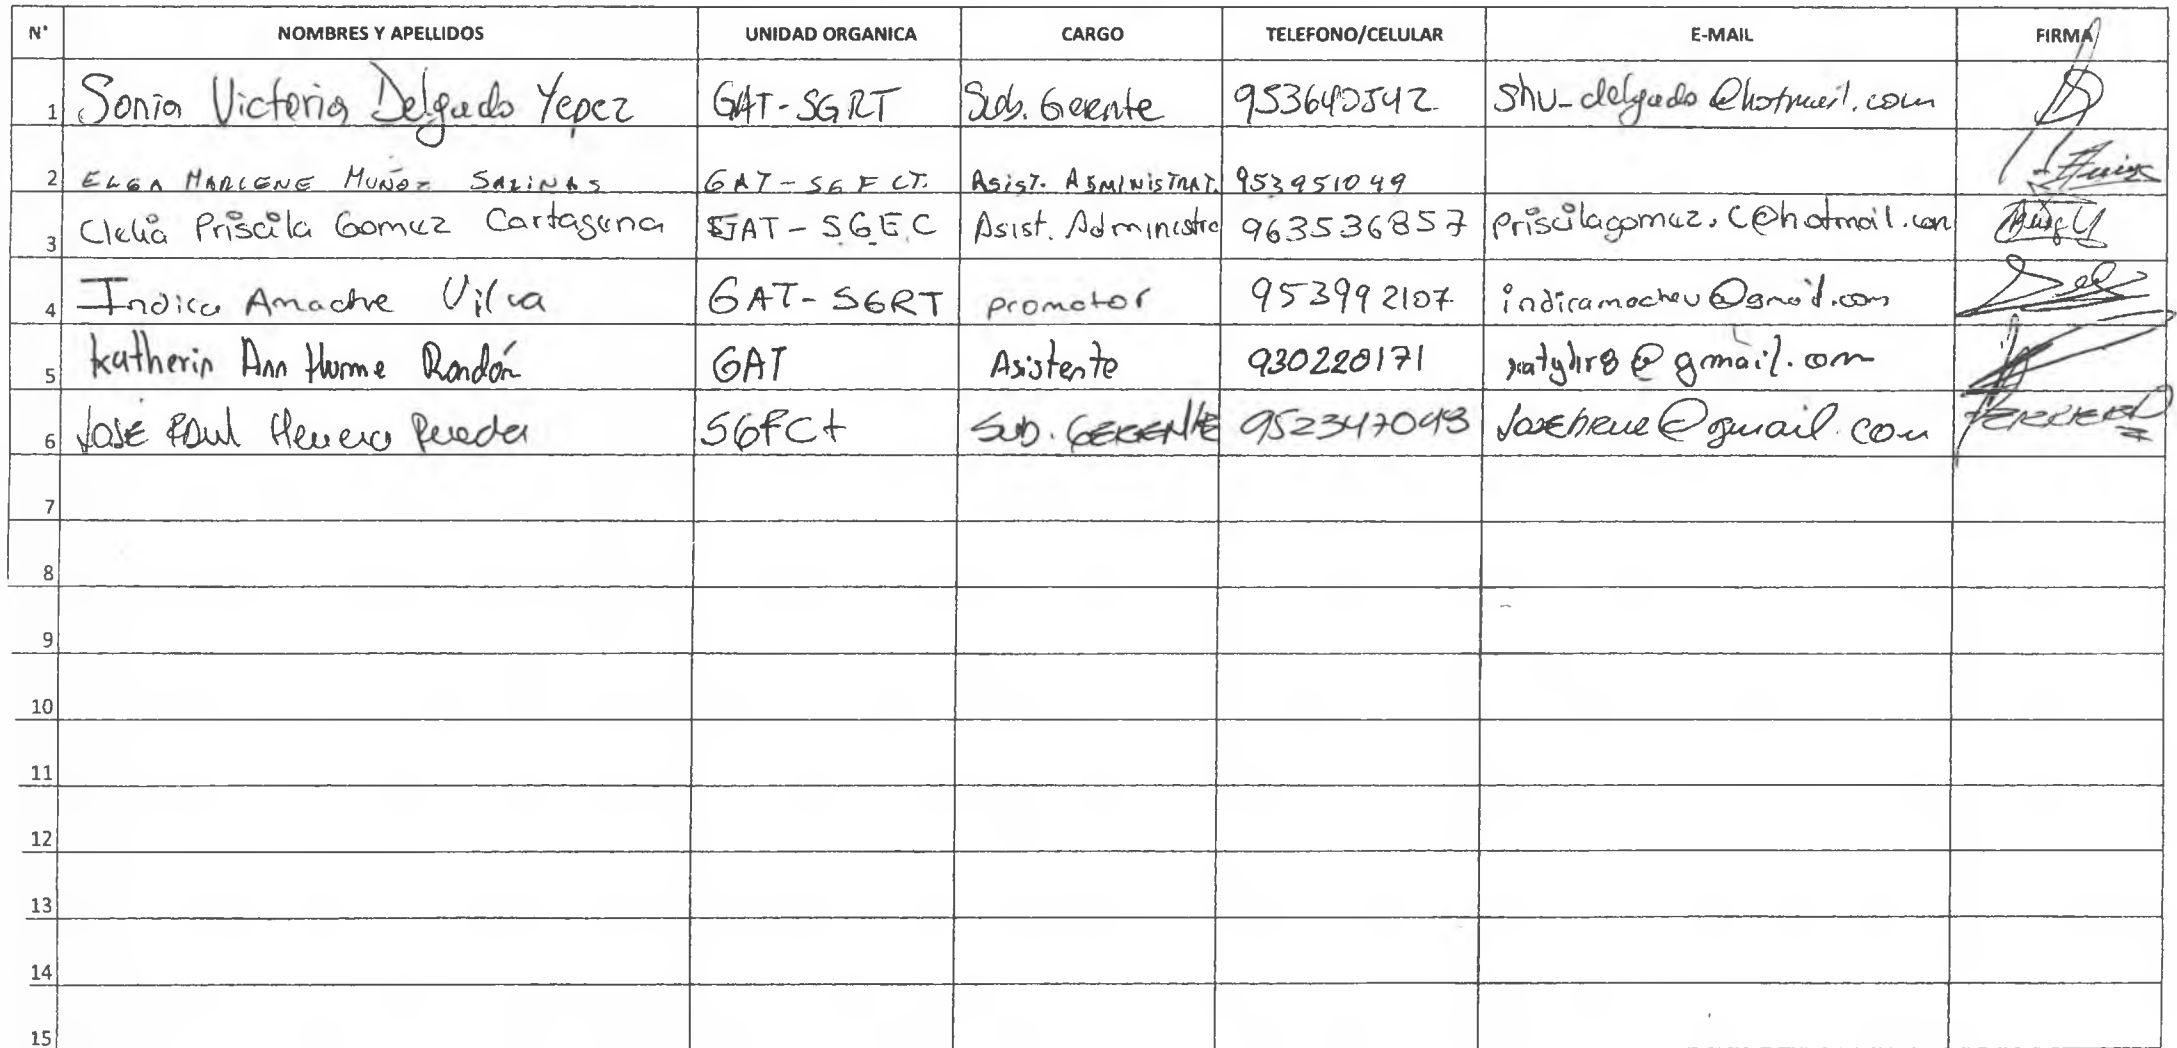 N° NOMBRES Y APELLIDOS UNIDAD ORGANICA CARGO TELEFONO/CELULAR E-MAIL FIRMA
1 Sonia Victoria Delgado Yepez GAT-SGRT Sub. Gerente 953640542 shv_delgado@hotmail.com
2 ELGA MARLENE MUÑOZ SALINAS GAT-SGFCT. Asist. ADMINISTRAT. 953951049
3 Clelia Priscila Gomez Cartagena GAT-SGEC Asist. Administra 963536857 priscilagomez.c@hotmail.com
4 Indica Amache Vilca GAT-SGRT promotor 953992107 indiramachev@gmail.com
5 Katherin Ann Hume Rondón GAT Asistente 930220171 katyhr8@gmail.com
6 José Raul Herrera Pereda SGFCt Sub. GERENTE 952347043 josehere@gmail.com HERRERA
7
8
9
10
11
12
13
14
15